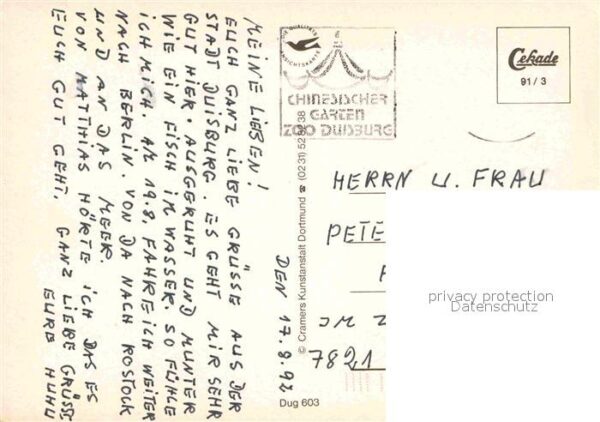 MEINE LIEBEN!
EUCH GANZ LIEBE GRÜSSE AUS DER
STADT DUISBURG. ES GEHT MIR SEHR
GUT HIER. AUSGERUHT UND MUNTER
WIE EIN FISCH IM WASSER. SO FÜHLE
ICH MICH. AM 19.8. FAHRE ICH WEITER
NACH BERLIN. VON DA NACH ROSTOCK
UND AN DAS MEER.
VON MATTHIAS HÖRTE ICH DAS ES
EUCH GUT GEHT. GANZ LIEBE GRÜSSE
EURE HUHU
DEN 17.8.92
© Cramers Kunstanstalt Dortmund ☎ (0231) 38
Dug 603
CHINESISCHER
GARTEN
ZOO DUISBURG
Cekade
91/3
HERRN U. FRAU
PETE
IM
7821
privacy protection
Datenschutz